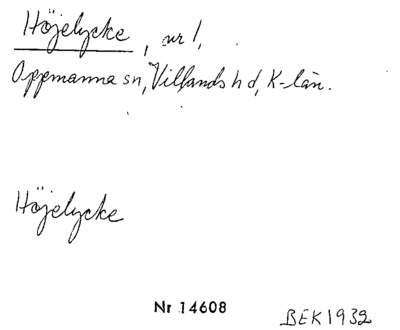 Höjelycke, nr 1,
Oppmanna sn, Villands hd, K-län.
Höjelycke
Nr 14608
BEK 1932